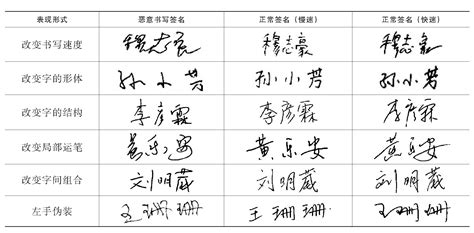 表现形式 恶意书写签名 正常签名（慢速） 正常签名（快速）
改变书写速度 穆志豪 穆志豪 穆志豪
改变字的形体 孙小芳 孙小芳 孙小芳
改变字的结构 李彦霖 李彦霖 李彦霖
改变局部运笔 黄乐安 黄乐安 黄乐安
改变字间组合 刘明葳 刘明葳 刘明葳
左手伪装 王珊珊 王珊珊 王珊珊